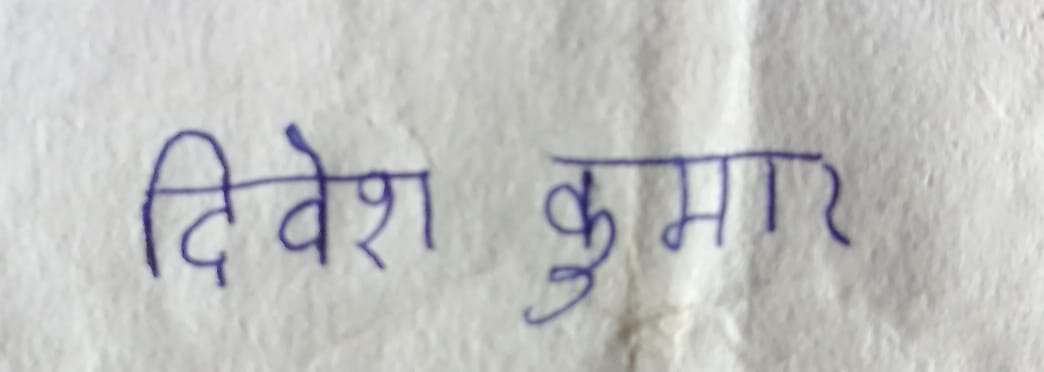 दिवेश कुमार